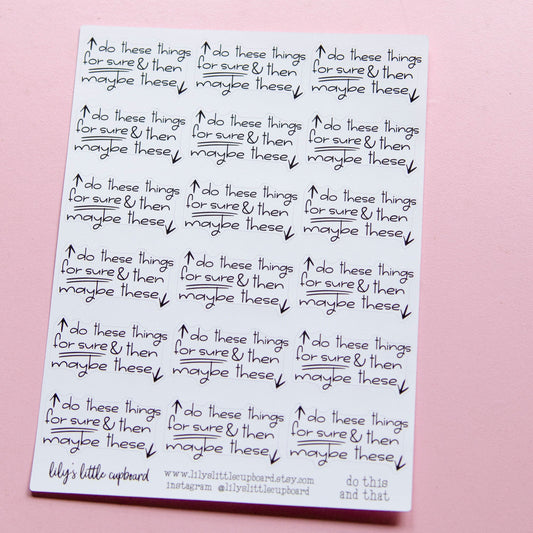 ↑do these things ↑do these things ↑do these things
for sure & then for sure & then for sure & then
maybe these↓ maybe these↓ maybe these↓
↑do these things ↑do these things ↑do these things
for sure & then for sure & then for sure & then
maybe these↓ maybe these↓ maybe these↓
↑do these things ↑do these things ↑do these things
for sure & then for sure & then for sure & then
maybe these↓ maybe these↓ maybe these↓
↑do these things ↑do these things ↑do these things
for sure & then for sure & then for sure & then
maybe these↓ maybe these↓ maybe these↓
↑do these things ↑do these things ↑do these things
for sure & then for sure & then for sure & then
maybe these↓ maybe these↓ maybe these↓
↑do these things ↑do these things ↑do these things
for sure & then for sure & then for sure & then
maybe these↓ maybe these↓ maybe these↓
lily's little cupboard
www.lilyslittlecupboard.etsy.com
instagram @lilyslittlecupboard
do this
and that